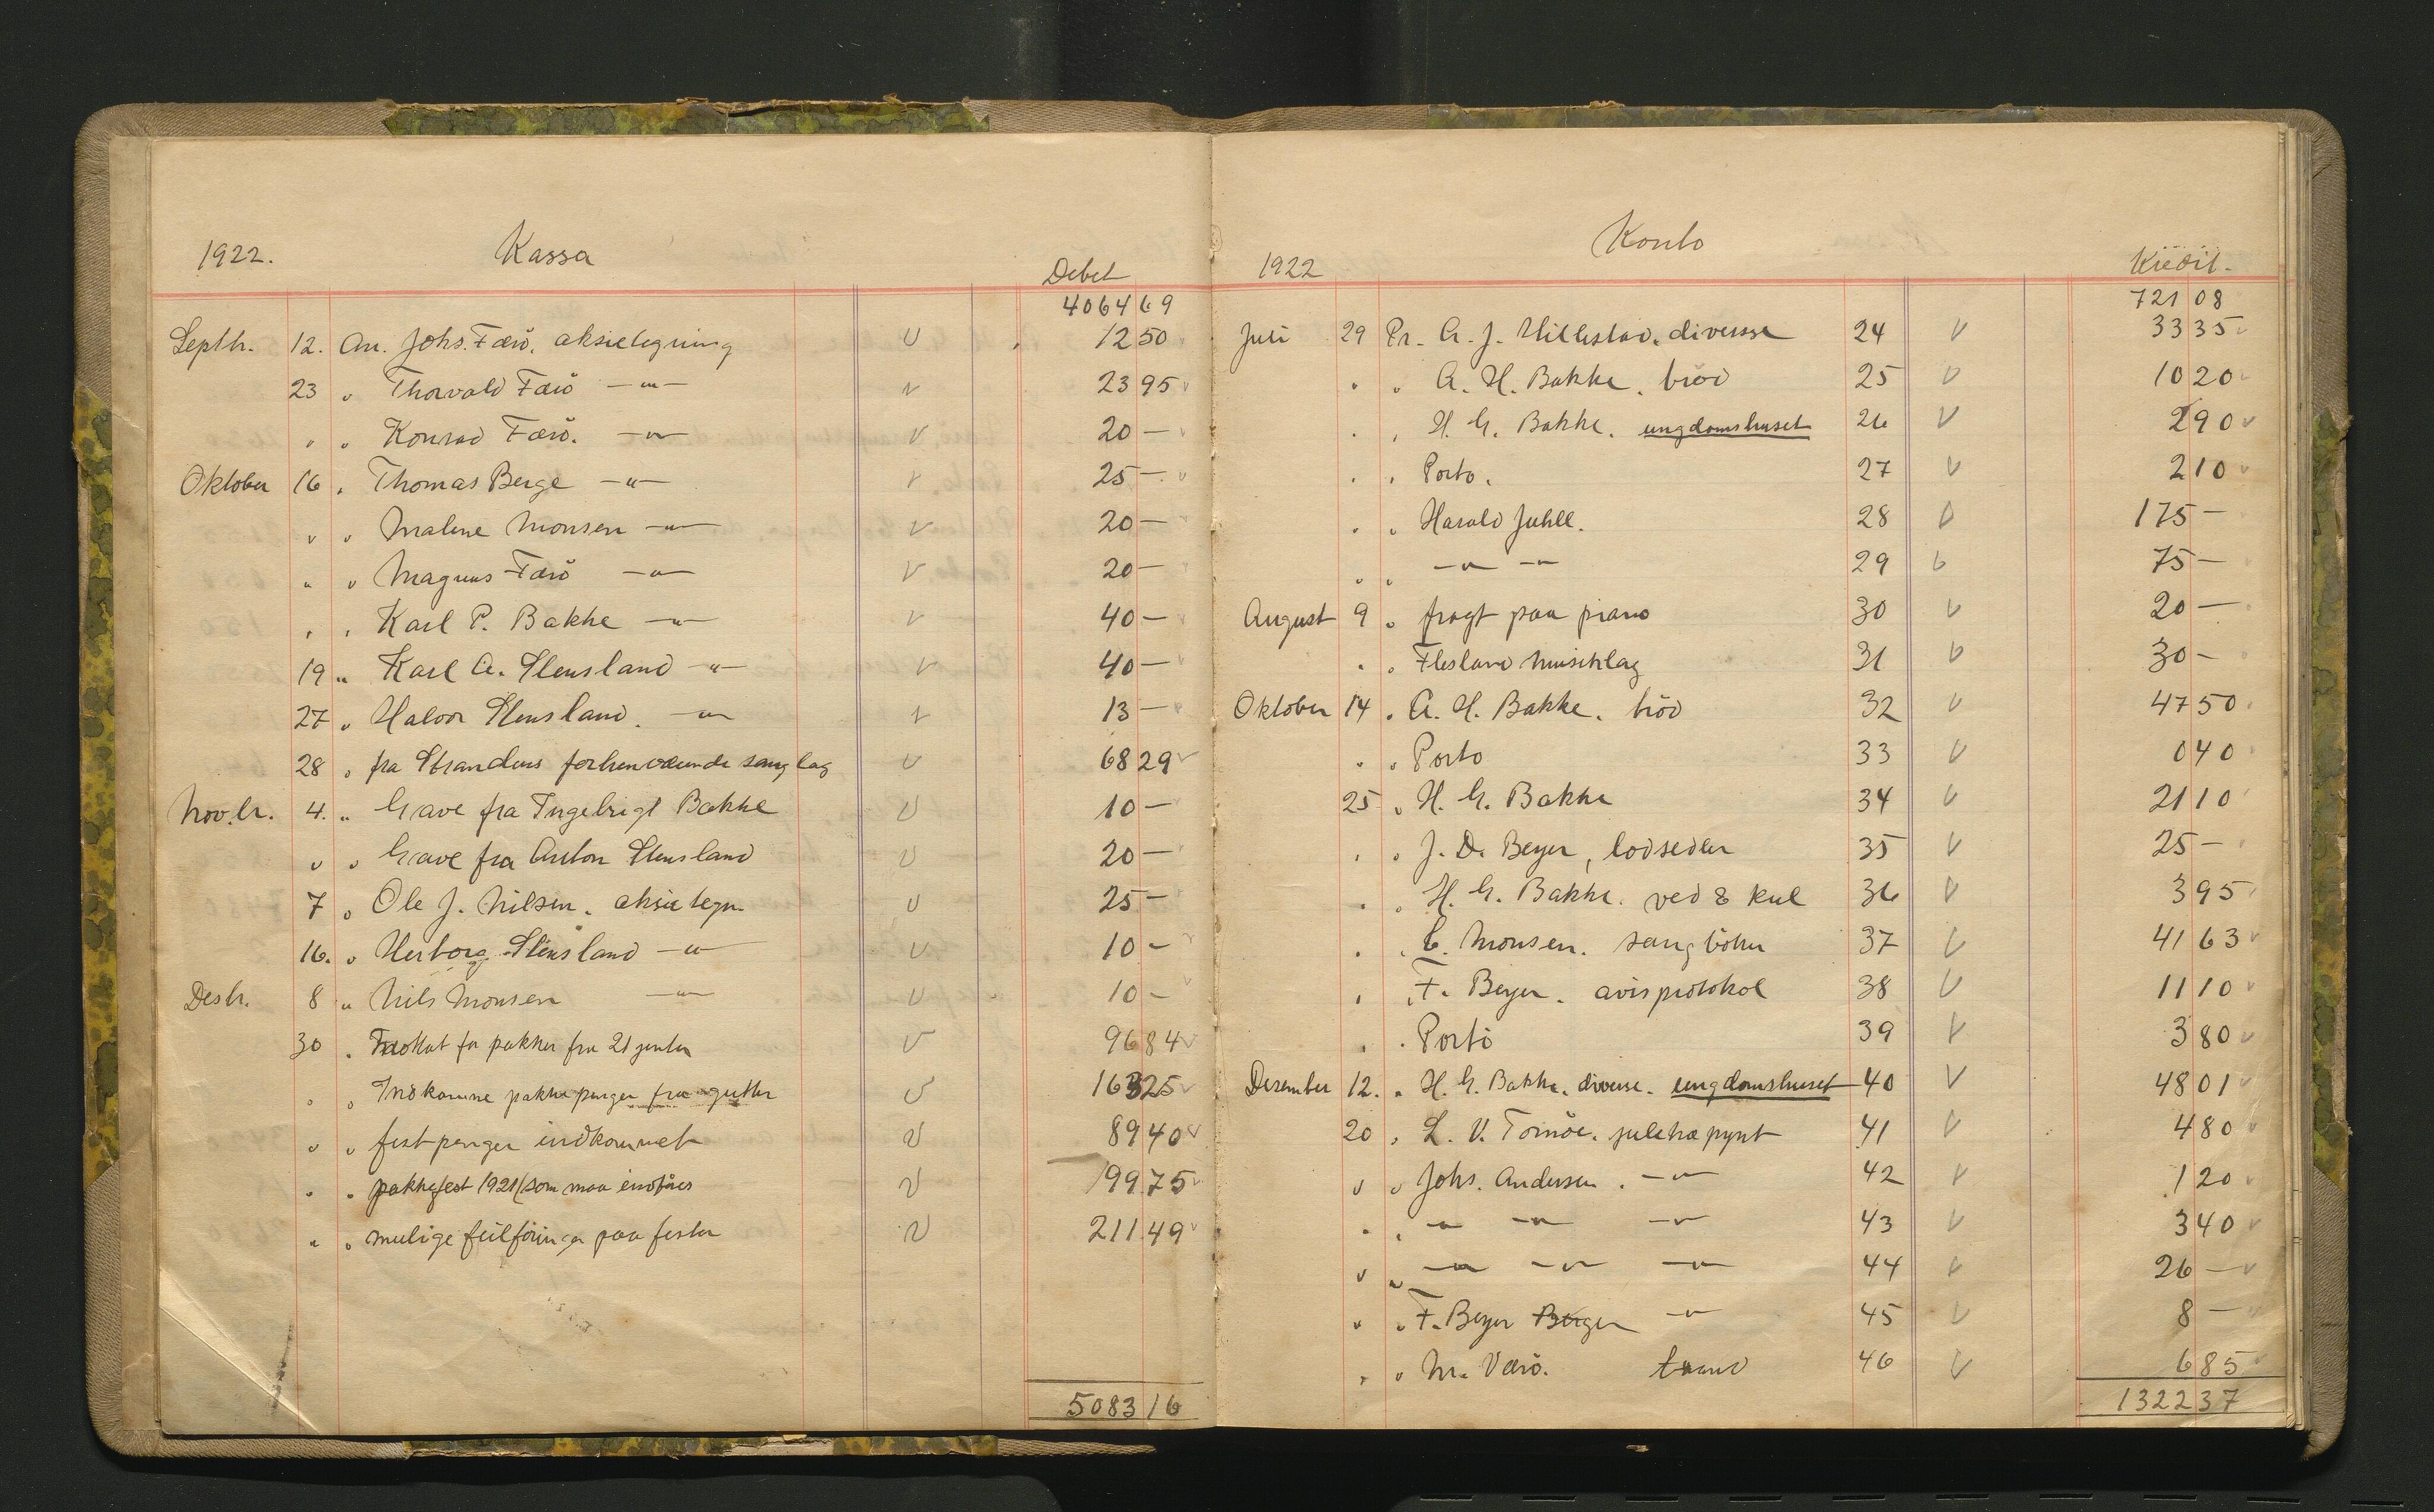 1922. Kassa Debet
4064 69
Septbr. 12. An. Johs. Færö. aksietegning v 12 50
23 " Thorvald Færö —"— v 23 95
" " Konrad Færö. —"— v 20 —
Oktober 16 " Thomas Berge —"— v 25 —
" " Malene Monsen —"— v 20 —
" " Magnus Færö —"— v 20 —
" " Karl P. Bakke —"— v 40 —
19 " Karl A. Stensland —"— v 40 —
27 " Halvor Stensland. —"— v 13 —
28 " fra Strandens forhenværende sanglag v 68 29
Nov.br. 4. " Gave fra Ingebrigt Bakke v 10 —
" " Gave fra Anton Stensland v 20 —
7 " Ole J. Nilsen. aksietegn. v 25 —
16. " Herborg Stensland —"— v 10 —
Desbr. 8 " Nils Monsen —"— v 10 —
30 " for pakker fra 21 jenter v 96 84
" " Indkomne pakkepenger fra gutter v 163 25
" " festpenger indkommet v 89 40
" " pakkefest 1921 (som maa indföres v 199 75
" " mulige feilföringer paa fester v 211 49
5083 16
1922 Konto Kredit.
721 08
Juli 29 Pr. A. J. Hillestad. diversse 24 v 33 35
" " A. H. Bakke. bröd 25 v 10 20
" " H. G. Bakke. ungdomshuset 26 v 2 90
" " Porto. 27 v 2 10
" " Harald Juhll. 28 v 175 —
" " —"— —"— 29 v 75 —
August 9 " fragt paa piano 30 v 20 —
" " Flesland musiklag 31 v 30 —
Oktober 14 " A. H. Bakke. bröd 32 v 47 50
" " Porto 33 v 0 40
25 " H. G. Bakke 34 v 21 10
" " J. D. Beyer, lodsedler 35 v 25 —
" " H. G. Bakke. ved & kul 36 v 3 95
" " Monsen. sangböker 37 v 41 63
" " F. Beyer. avisprotokol 38 v 11 10
" " Porto 39 v 3 80
Desember 12. " H. G. Bakke. diverse. ungdomshuset 40 v 48 01
20 " L. V. juletræpynt 41 v 4 80
" " Johs. Andersen. —"— 42 v 1 20
" " —"— —"— —"— 43 v 3 40
" " —"— —"— —"— 44 v 26 —
" " F. Beyer —"— 45 v 8 —
" " M. Værö. 46 v 6 85
1322 37